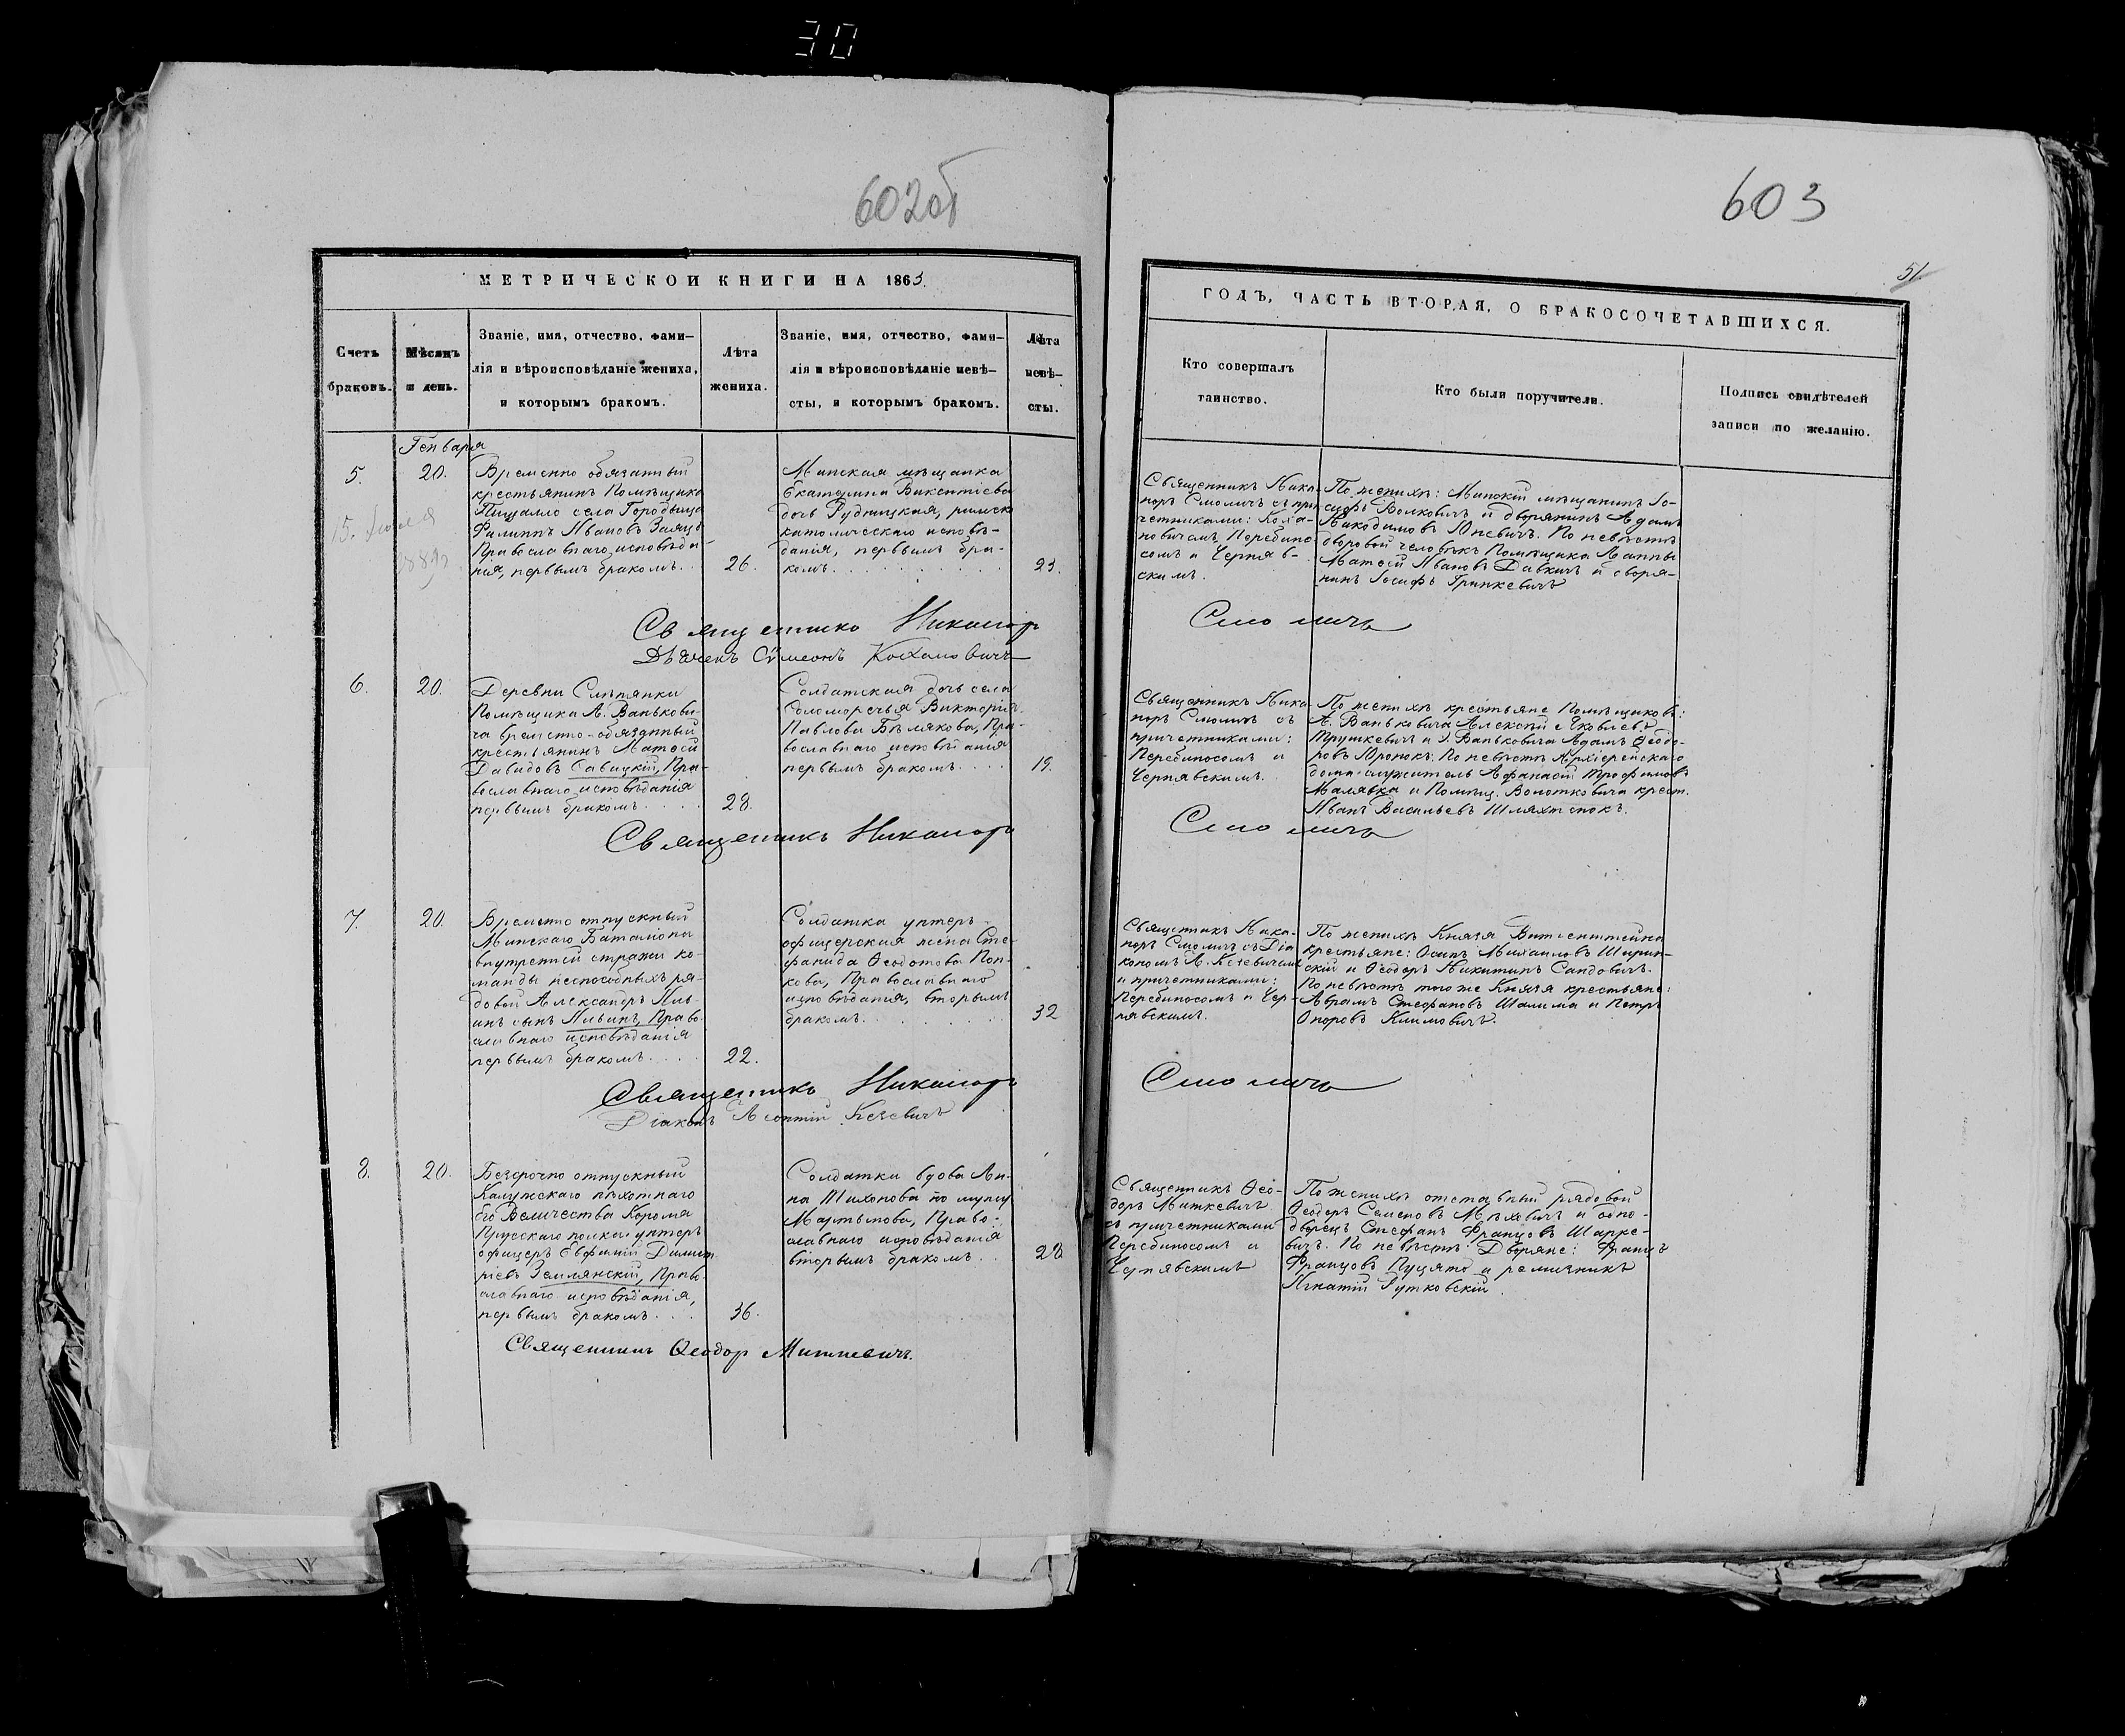 30
602об
603
51
МЕТРИЧЕСКОЙ КНИГИ НА 1863.
Счетъ
браковъ.
Мѣсяцъ
и день.
Званіе, имя, отчество, фами-
лія и вѣроисповѣданіе жениха,
и которымъ бракомъ.
Лѣта
жениха.
Званіе, имя, отчество, фами-
лія и вѣроисповѣданіе невѣ-
сты, и которымъ бракомъ.
Лѣта
невѣ-
сты.
ГОДЪ, ЧАСТЬ ВТОРАЯ, О БРАКОСОЧЕТАВШИХСЯ.
Кто совершалъ
таинство.
Кто были поручители.
Подпись свидѣтелей
записи по желанію.
Генваря
5.
20.
Временно обязанный
крестьянинъ Помѣщика
Пищалло села Городища
Филиппъ Ивановъ Заяцъ
Православнаго исповѣда-
нія, первымъ бракомъ..
26.
Минская мѣщанка
Екатерина Викентіева
дочь Рудницкая, римско
католическаго исповѣ-
данія, первымъ бра-
комъ
23.
Священникъ Ника-
норъ Смоличъ съ при
четниками: Коха-
новичемъ, Перебино-
сомъ и Черняв-
скимъ.
По женихѣ: Минскій мѣщанинъ Іо-
сифъ Волковичъ и дворянинъ Адамъ
Никодимовъ Юневичъ. По невѣстѣ
дворовой человѣкъ Помѣщика Ванны
Матѳей Ивановъ Давкичъ и дворя-
нинъ Іосифъ Гринкевичъ
Священникъ Никаноръ Смоличъ
Дьячекъ Сѵмеонъ Кохановичъ
6.
20.
Деревни Слѣпянки
Помѣщика А. Ванькови-
ча временно-обязанный
крестьянинъ Матѳей
Давидовъ Савицкій, Пра-
вославнаго исповѣданія
первымъ бракомъ
28.
Солдатская дочь села
Соломоречья Викторія
Павлова Бѣлякова, Пра-
вославнаго исповѣданія
первымъ бракомъ
19.
Священникъ Ника-
норъ Смоличъ съ
причетниками:
Перебиносомъ и
Чернявскимъ.
По женихѣ крестьяне Помѣщиковъ:
А. Ваньковича Алексѣй Яковлевъ
Трушкевичъ и Э. Ваньковича Адамъ Ѳеодо-
ровъ Юронокъ. По невѣстѣ Архіерейскаго
дома служитель Афанасій Трофимовъ
Малявка и Помѣщ. Волотковича крест.
Иванъ Васильевъ Шляхтенокъ.
Священникъ Никаноръ Смоличъ
7.
20.
Временно отпускный
Минскаго Баталіона
внутренней стражи ко-
манды неспособныхъ ря-
довой Александръ Иль-
инъ сынъ Ильинъ, Право-
славнаго исповѣданія
первымъ бракомъ
22.
Солдатка унтеръ-
офицерская жена Сте-
фанида Ѳеодотова Поп-
кова, Православнаго
исповѣданія, вторымъ
бракомъ
32
Священникъ Ника-
норъ Смоличъ съ Діа
кономъ Л. Кезевичемъ
и причетниками:
Перебиносомъ и Чер-
нявскимъ.
По женихѣ Князя Витгенштейна
крестьяне: Осипъ Михаиловъ Ширин-
скій и Ѳеодоръ Никитинъ Сандовичъ.
По невѣстѣ того же Князя крестьяне:
Абрамъ Стефановъ Шалима и Петръ
Онаровъ Климовичъ.
Священникъ Никаноръ Смоличъ
Діаконъ Леонтій Кезевичъ
8.
20.
Безсрочно отпускный
Калужскаго пѣхотнаго
Его Величества Короля
Прусскаго полка унтеръ
офицеръ Евфимій Димит-
ріевъ Землянскій, Право-
славнаго исповѣданія,
первымъ бракомъ
36.
Солдатка вдова Ан-
на Тихонова по мужу
Мартынова, Право-
славнаго исповѣданія
вторымъ бракомъ
28
Священникъ Ѳео-
доръ Миткевичъ
съ причетниками
Перебиносомъ и
Чернявскимъ
По женихѣ отставный рядовой
Ѳеодоръ Семеновъ Мѣховичъ и одно-
дворецъ Стефанъ Францовъ Шарке-
вичъ. По невѣстѣ: Дворяне: Францъ
Францовъ Пуцято и
Игнатій Рутковскій.
Священникъ Ѳеодор Миткевичъ.